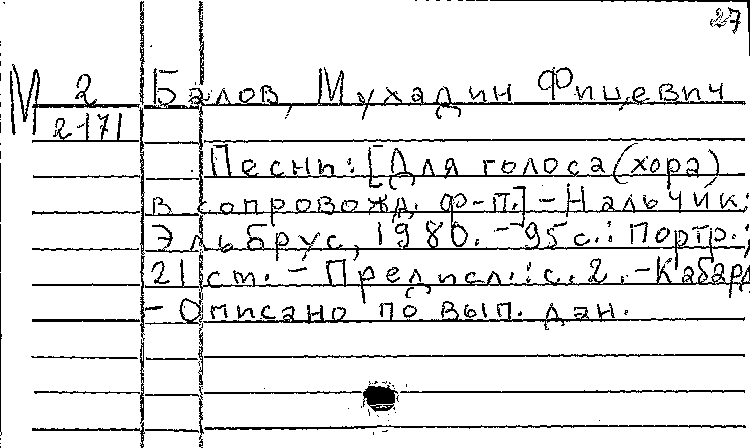 27
М 2 Балов, Мухадин Фицевич
2171
Песни: [Для голоса (хора)
в сопровожд. ф-п.] - Нальчик:
Эльбрус, 1980. - 95 с.: портр.;
21 см. - Предисл.: с. 2. - Кабард
- Описано по вып. дан.